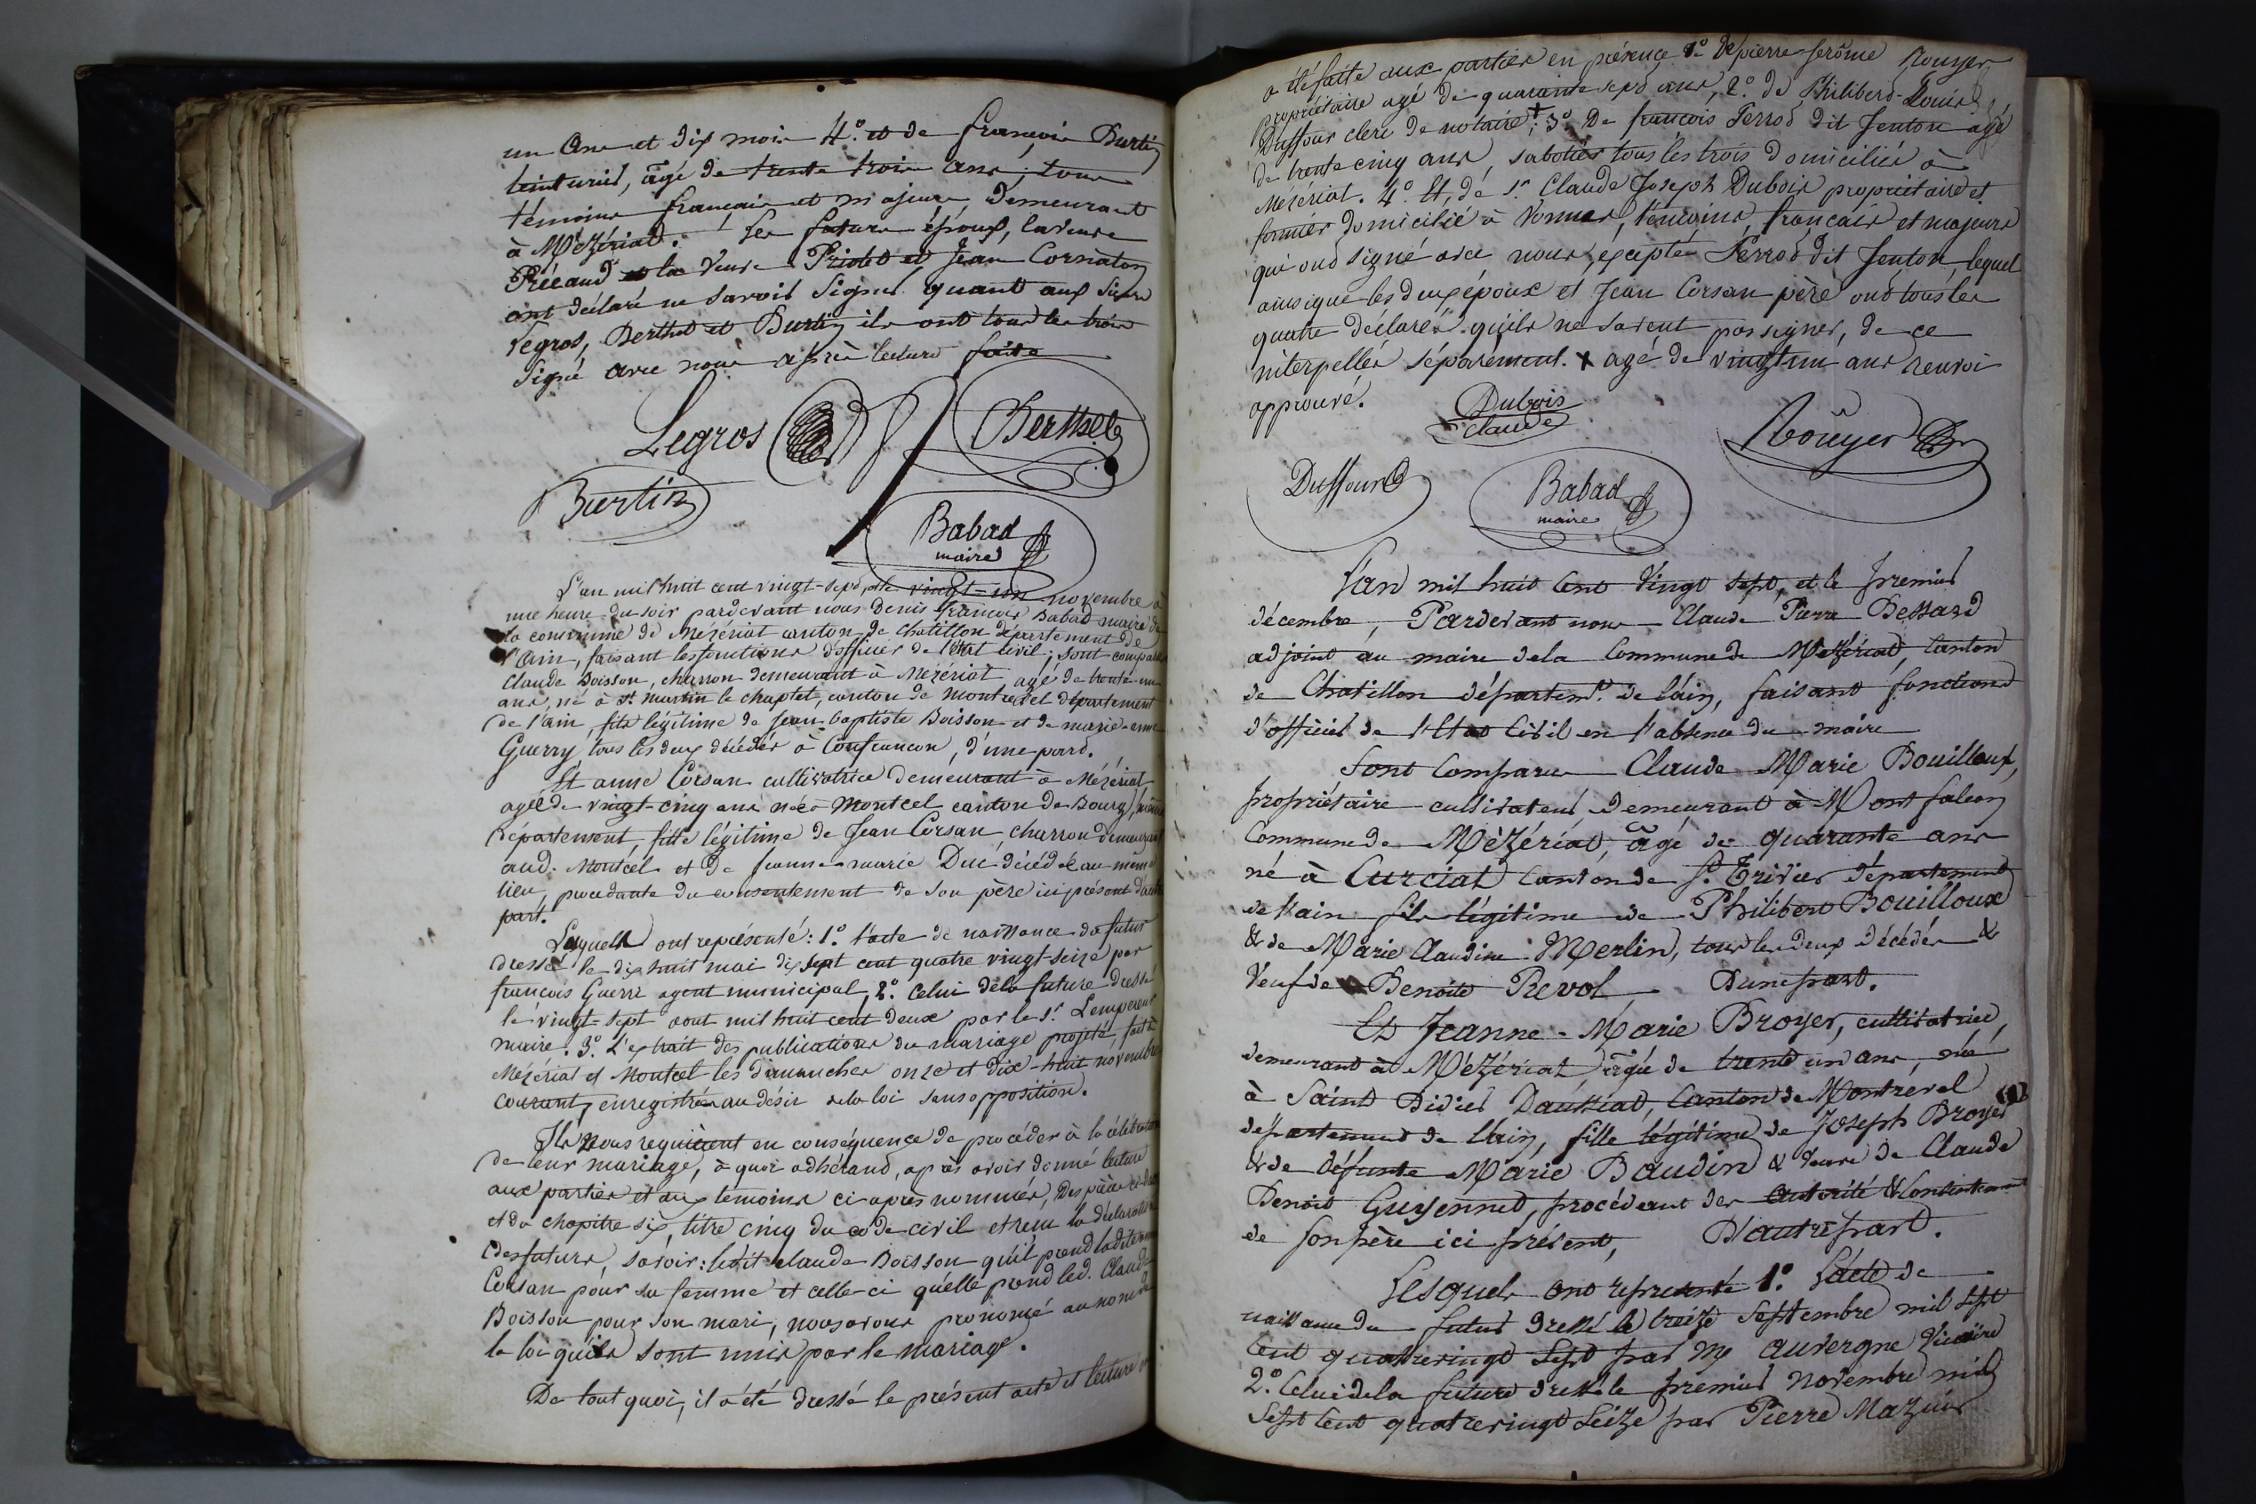 un an et dix mois 4°. et de françois Burtin
teinturier, âgé de trente trois ans, tous
témoins français et majeurs, demeurant
à Mézériat. Les futurs époux, la veuve
la veuve Priolet et Jean Cornaton
ont déclaré ne savoir signer quant aux sieurs
Legros, Berthet et Burtin ils ont tous les trois
signé avec nous après lecture faite
Legros Berthet
Burtin
Babad
maire
L'an mil huit cent vingt-sept, et le vingt-un novembre à
une heure du soir pardevant nous Denis françois Babad maire de
la commune de Mézériat canton de chatillon département de
l'Ain, faisant les fonctions d'officier de l'état civil; sont comparus
Claude Boisson, charron demeurant à Mézériat, agé de trente-un
ans, né à St. martin le chaptet, canton de montrevel département
de l'ain, fils légitime de Jean-baptiste Boisson et de marie-anne
Guerry tous les deux décédés à Confrancon, d'une part.
Et anne Corsan cultivatrice demeurant à Mézériat,
agée de vingt-cinq ans née à Montcel canton de Bourg, même
département, fille légitime de Jean Corsan, charron demeurant
aud. Montcel et de jeanne-marie Duc, décédée au meme
lieu, procedante du consentement de son père ici présent d'autre
part.
Lesquels ont représenté: 1°. l'acte de naissance du futur
dressé le dix huit mai dix sept cent quatre vingt-seize par
françois Guerri agent municipal, 2°. Celui de la future dressé
le vingt-sept aout mil huit cent deux par le sr. Lempereur
maire. 3°. L'extrait des publications du mariage projeté, fait à
Mézériat et Montcel les dimanches onze et dix-huit novembre
courant, enregistrées au désir de la loi sans opposition.
Ils nous requièrent en conséquence de procéder à la célébration
de leur mariage, à quoi adhérant, après avoir donné lecture
aux parties et aux témoins ci-après nommés, des pièces ci-dessus
et du chapitre six, titre cinq du code civil et reçu la déclaration
des futurs, savoir: ledit claude Boisson qu'il prend ladite anne
Corsan pour sa femme et celle-ci qu'elle prend led. Claude
Boisson pour son mari, nous avons prononcé au nom de
la loi qu'ils sont unis par le mariage.
De tout quoi, il a été dressé le présent acte et lecture en
a été faite aux parties en présence 1°. de pierre-Jerôme Rouyer
propriétaire agé de quarante sept ans, 2°. de Philibert-Louis
Duffour clerc de notaire+; 3°. De françois Ferrod dit Jenton agé
de trente cinq ans, sabotier tous les trois domiciliés à
Mézériat. 4°. Et, de sr. Claude Joseph Dubois propriétaire et
fermier domicilié à Vonnas, témoins, français et majeurs
qui ont signé avec nous, excepté Ferrod dit Jenton, lequel
ainsi que les deux époux et Jean Corsan père ont tous les
quatre déclarés qu'ils ne savent pas signer, de ce
interpellés séparément. + agé de vingt un ans renvoi
approuvé.
Dubois
claude
Rouyer
Duffour
Babad
maire
L'an mil huit cent vingt sept, et le premier
décembre, Pardevant nous Claude Pierre Bessard
adjoint au maire de la Commune de Mézériat, Canton
de Chatillon départemt. de l'ain, faisant fonctions
d'officier de l'Etat Civil en l'absence du maire
Sont Comparus Claude Marie Bouilloux,
propriétaire cultivateur demeurant à Montfalcon
Commune de Mézériat, âgé de quarante ans
né à Curciat Canton de St. Trivier département
de l'ain fils légitime de Philibert Bouilloux
& de Marie Claudine Merlin, tous les deux décédés &
Veuf de Benoite Revol, D'une part.
Et Jeanne-Marie Broyer, cultivatrice,
demeurant à Mézériat, âgée de trente un ans, née
à Saint Didier Daussiat, Canton de Montrevel
département de l'ain, fille légitime de Joseph Broyer
& de défunte Marie Baudin & veuve de Claude
Benoit Guyennet, procédant des autorité & Consentement
de son père ici présent, D'autre part.
Lesquels ont représenté 1°. L'acte de
naissance du futur dressé le treize septembre mil sept
cent quatrevingt sept par Mr. auvergne Vicaire
2°. Celui de la future dressé le premier novembre mil
sept cent quatrevingt seize par Pierre Mazuir